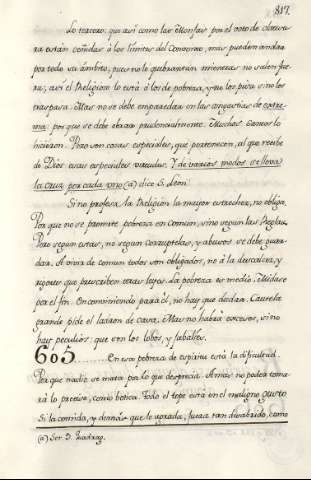 817.
Lo tercero, que asi como las Monjas por el voto de clausu-
ra están ceñidas á los limites del Convento, mas pueden andar
por todo su ámbito, pues no le quebrantan mientras no salen fue-
ra; asi el Religioso lo está á los de pobreza, y no los pisa si no los
traspasa. Mas no se debe emparedar en las angustias de extre-
ma: por que se debe obrar prudencialmente. Muchos Santos lo
hicieron. Pero son cosas especiales, que pertenecen, al que recibe
de Dios esas especiales vocación. Y de varios modos se lleva
la cruz por cada uno (a) dice S. Leon.
Si no profesa la Religion la mayor estrechez, no obliga.
Por que no se promete pobreza en comun, sino segun las Reglas.
Pero segun estas, no segun corruptelas, y abusos se debe guar-
dar. A vivir de comun todos son obligados, no á la descalcez, y
rigores que prescriben otras leyes. La pobreza es medio. Midase
por el fin. En conviniendo para él, no hay que dudar. Cautela
grande pide el ladron de casa. Mas no habrá excesos, si no
hay peculios: que son los lobos, y
605 En esa pobreza de espiritu está la dificultad.
Por que nadie se mata por lo que desprecia. A mas no poder toma-
rá lo preciso, como botica. Todo el tope está en el maligno gusto
Si la comida, y demás que le agrada, fuera tan desabrido, como
(a) Ser. 9. Quadrag.